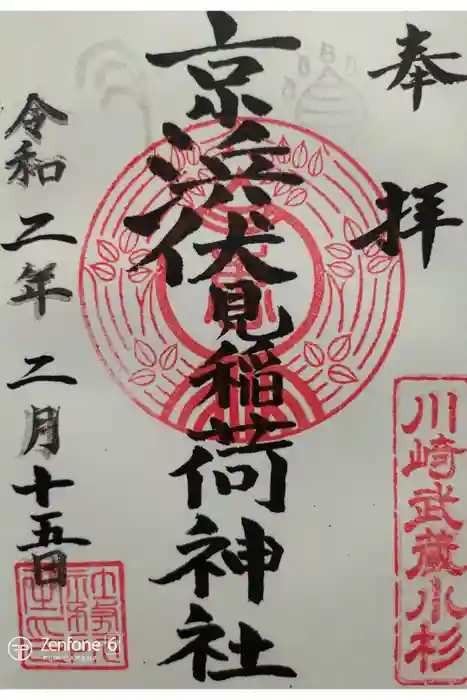 奉拝
京浜伏見稲荷神社
令和二年二月十五日
川崎武蔵小杉
Zenfone 6